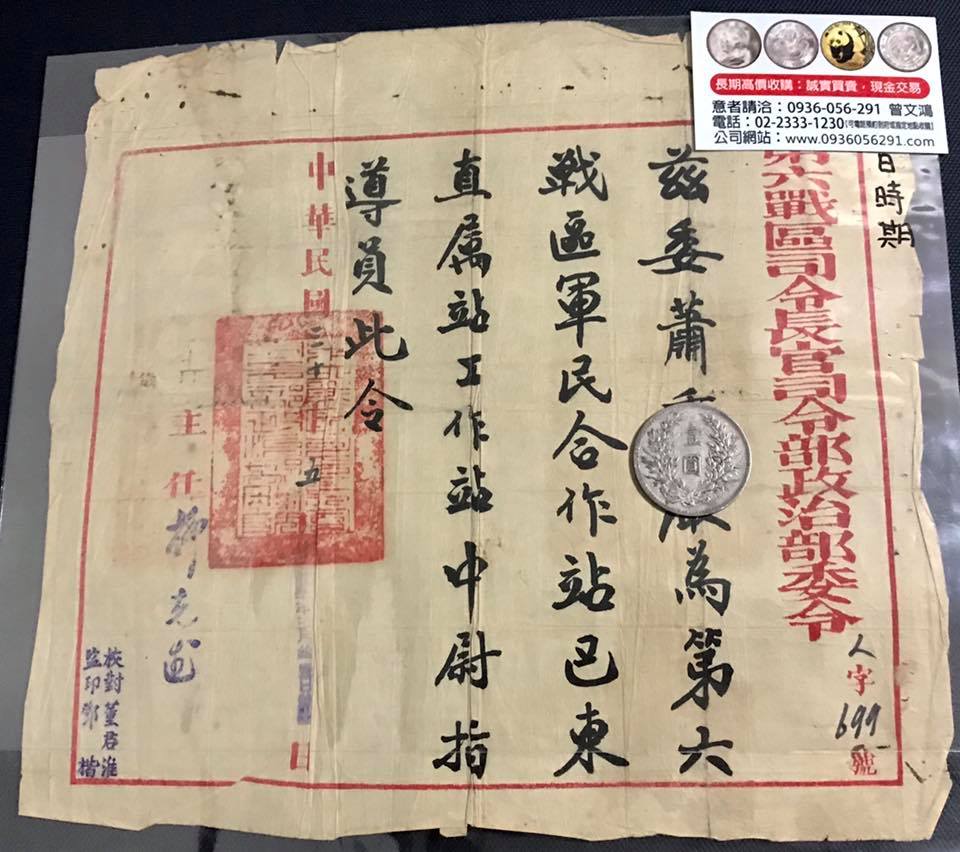 長期高價收購：誠實買賣，現金交易
意者請洽：0936-056-291 曾文鴻
電話：02-2333-1230
公司網站：www.0936056291.com
日時期
第六戰區司令長官司令部政治部委令
人字699號
茲委蕭 為第六
戰區軍民合作站巴東
直属站工作站中尉指
導員此令
中華民國 五 日
主任柳克述
校對董君淮
監印鄧楷
壹圓